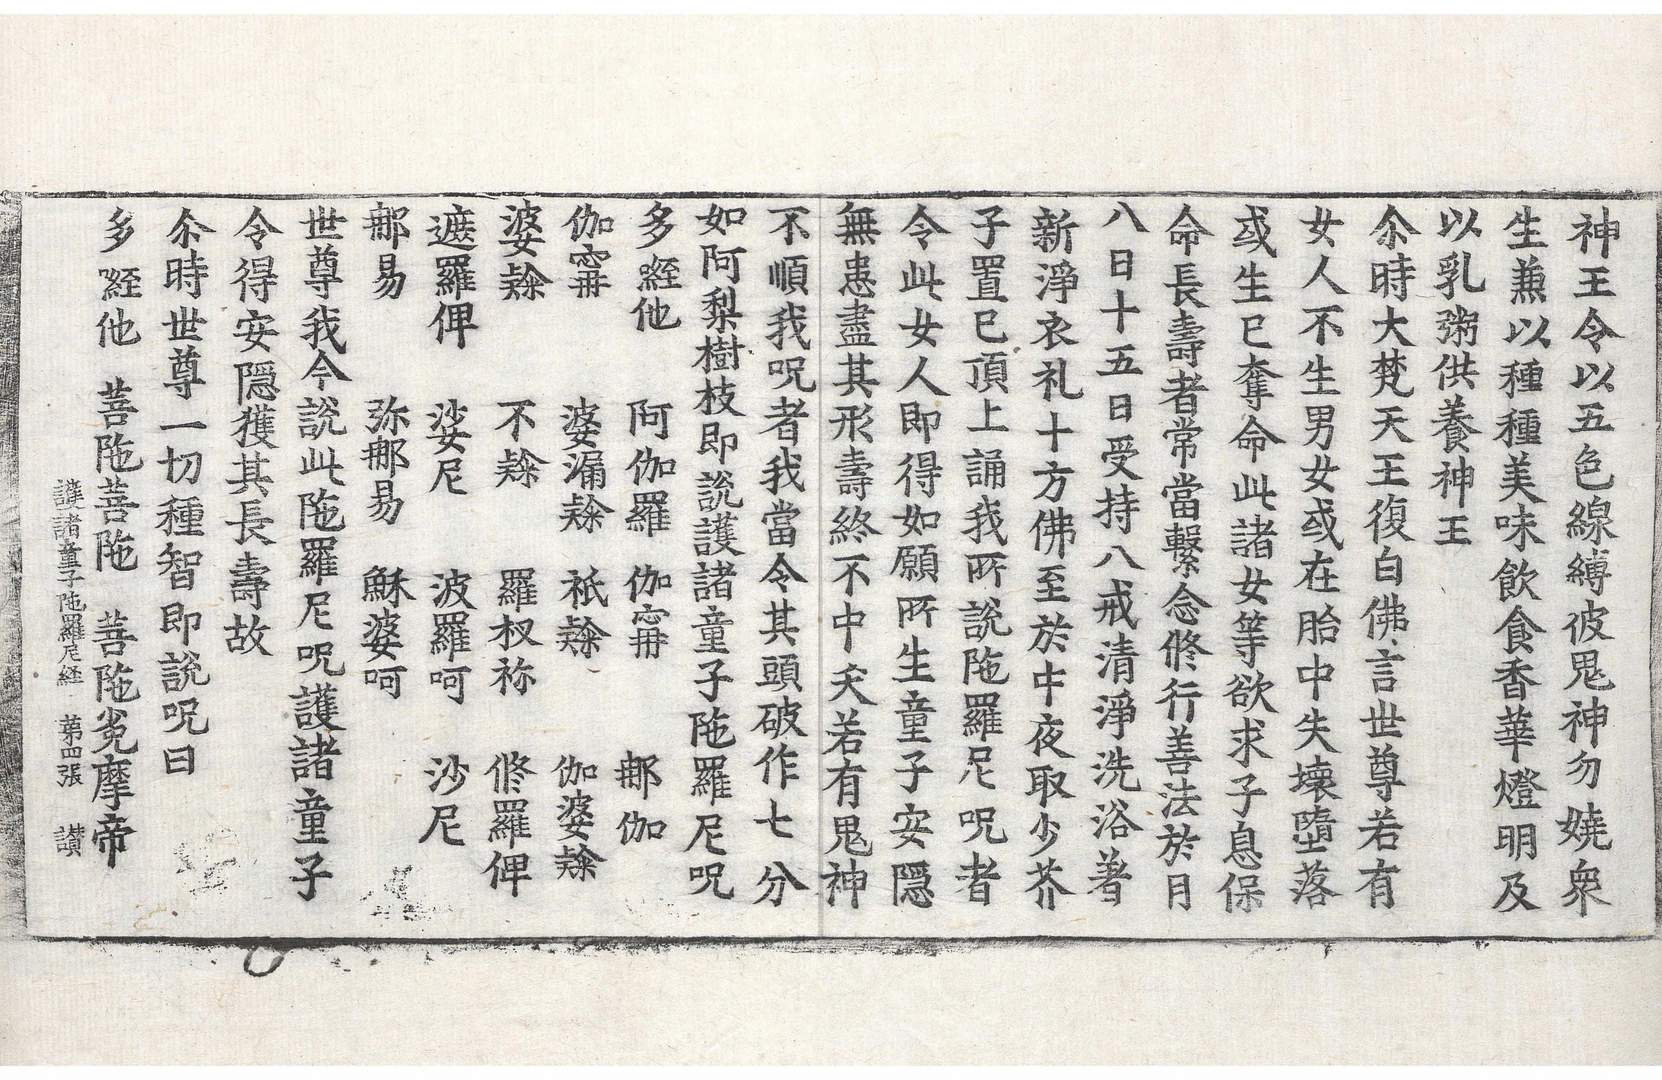 神王令以五色線縛彼鬼神勿嬈衆
生兼以種種美味飲食香華燈明及
以乳粥供養神王
尒時大梵天王復白佛言世尊若有
女人不生男女或在胎中失壞墮落
或生已奪命此諸女等欲求子息保
命長壽者常當繫念修行善法於月
八日十五日受持八戒清淨洗浴著
新淨衣礼十方佛至於中夜取少芥
子置已頂上誦我所說陁羅尼呪者
令此女人即得如願所生童子安隱
無患盡其形壽終不中夭若有鬼神
不順我呪者我當令其頭破作七分
如阿梨樹枝即說護諸童子陁羅尼呪
多絰他 阿伽羅 伽寗 郍伽
伽寗 婆漏㖿 祇㖿 伽婆㖿
婆㖿 不㖿 羅杈祢 修羅俾
遮羅俾 娑尼 波羅呵 沙尼
郍易 弥郍易 穌婆呵
世尊我今說此陁羅尼呪護諸童子
令得安隱獲其長壽故
尒時世尊一切種智即說呪曰
多絰他 菩陁菩陁 菩陁㝹摩帝
護諸童子陁羅尼経 苐四張 讃